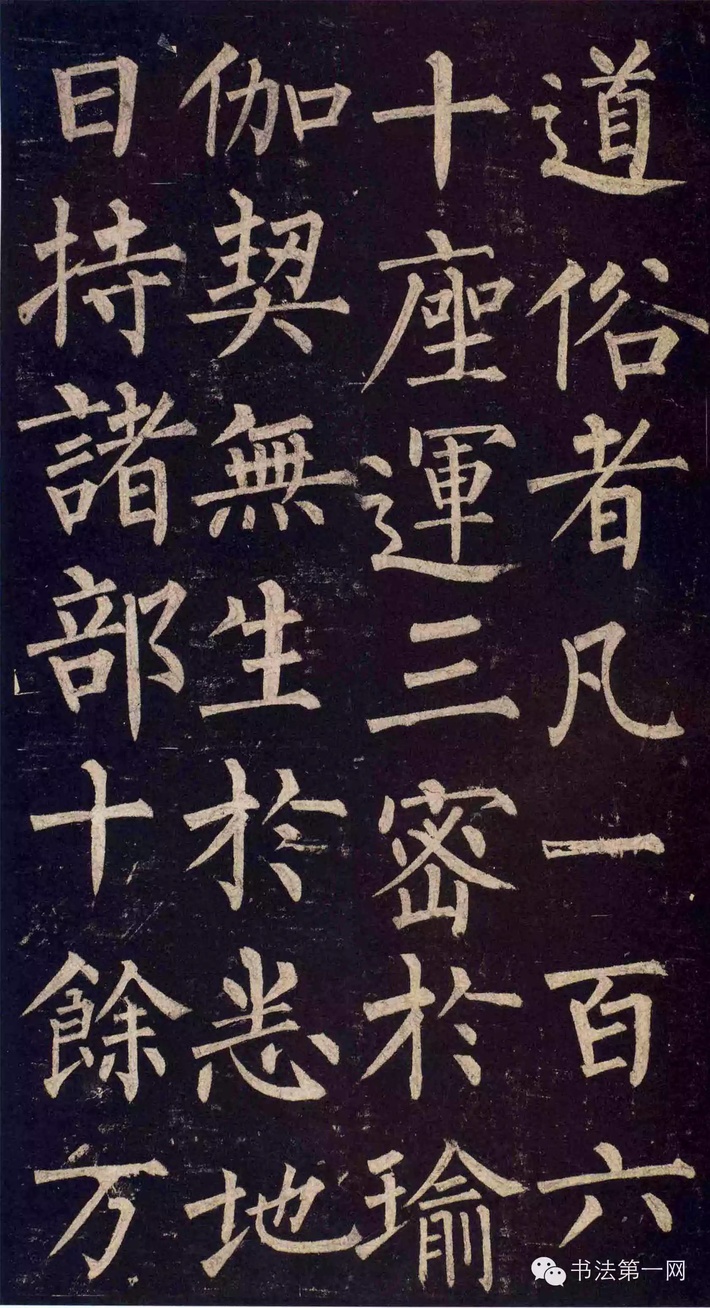 道俗者凡一百六
十座運三密於瑜
伽契無生於悉地
日持諸部十餘万
书法第一网